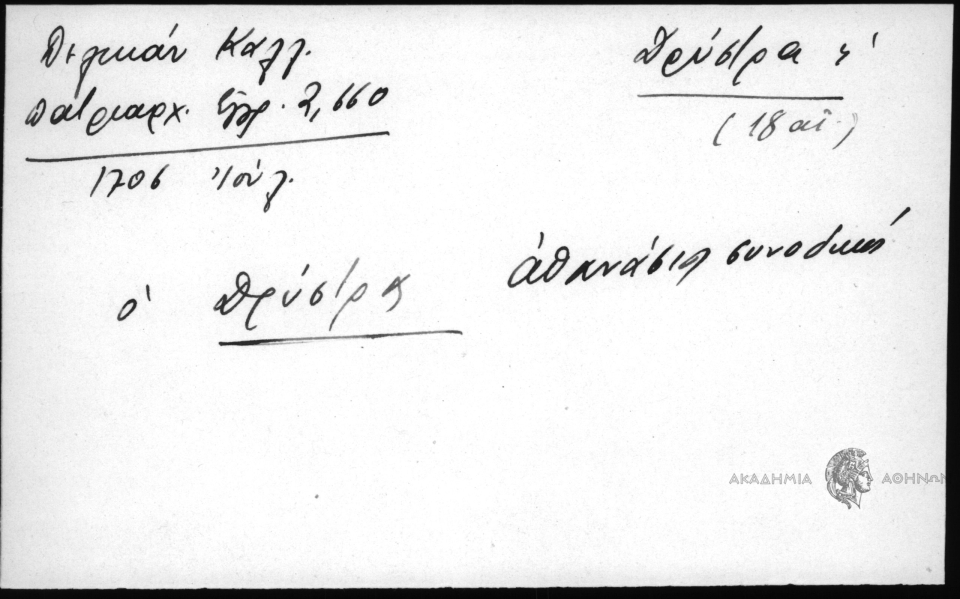 Δελικάν Καλλ.
Πατριαρχ. Ἔγγρ. 2, 660
1706 Ἰούλ.
Δρύστρα ἡ
(18 αἰ.)
ὁ Δρύστρας Ἀθανάσιος συνοδικῶς
ΑΚΑΔΗΜΙΑ ΑΘΗΝΩΝ